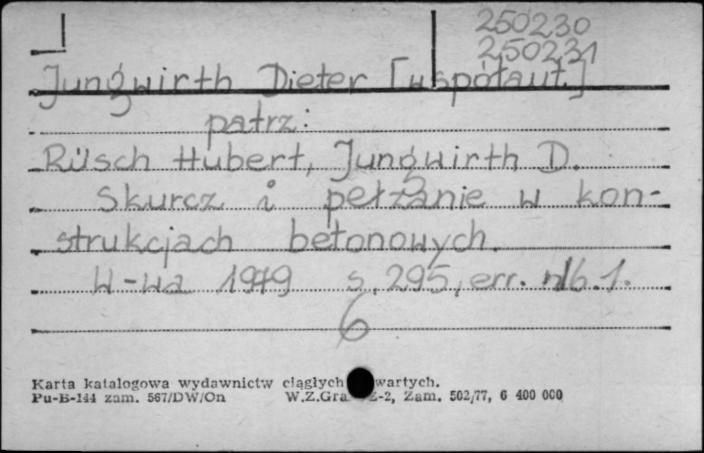 250230
250231
Jungwirth Dieter [współaut.]
patrz:
Rüsch Hubert, Jungwirth D.
Skurcz i pełzanie w kon-
strukcjach betonowych.
W-wa 1979 s. 295, err. nlb. 1.
6
Karta katalogowa wydawnictw ciągłych wartych.
Pu-B-144 zam. 567/DW/On W.Z.Gra Z-2, Zam. 502/77, 6 400 000